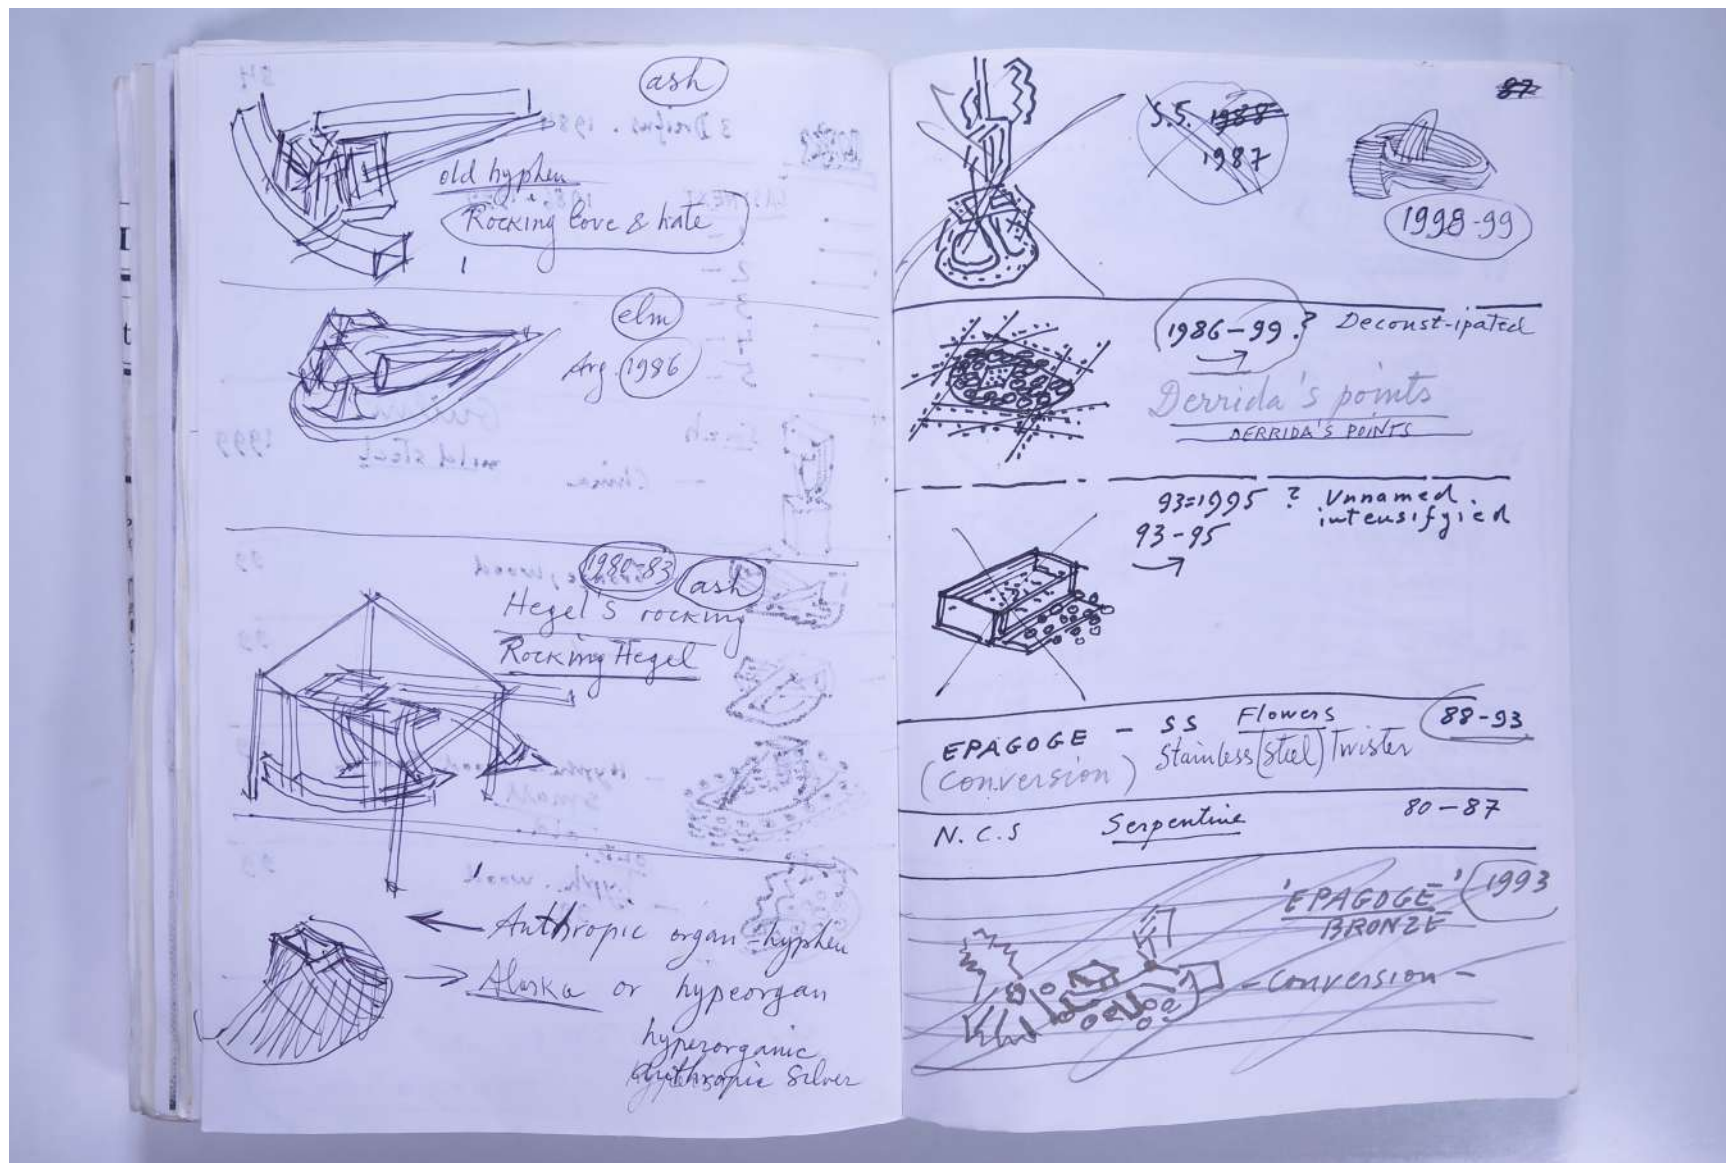 ash
old hyphen
Rocking love & hate
elm
Arg. 1986
1980-83
ash
Hegel's rocking
Rocking Hegel
Anthropic organ-hyphen
Alaska or hypeorgan
hyperorganic
Anthropic Silver
87
S.S. 1988
1987
1998-99
1986-99? Deconst-ipated
Derrida's points
DERRIDA'S POINTS
93=1995 ? Unnamed.
intensifyied
93-95
EPAGOGE - SS Flowers 88-93
(Conversion) Stainless (Steel) Twister
N.C.S Serpentine 80-87
'EPAGOGE' 1993
BRONZE
- Conversion -